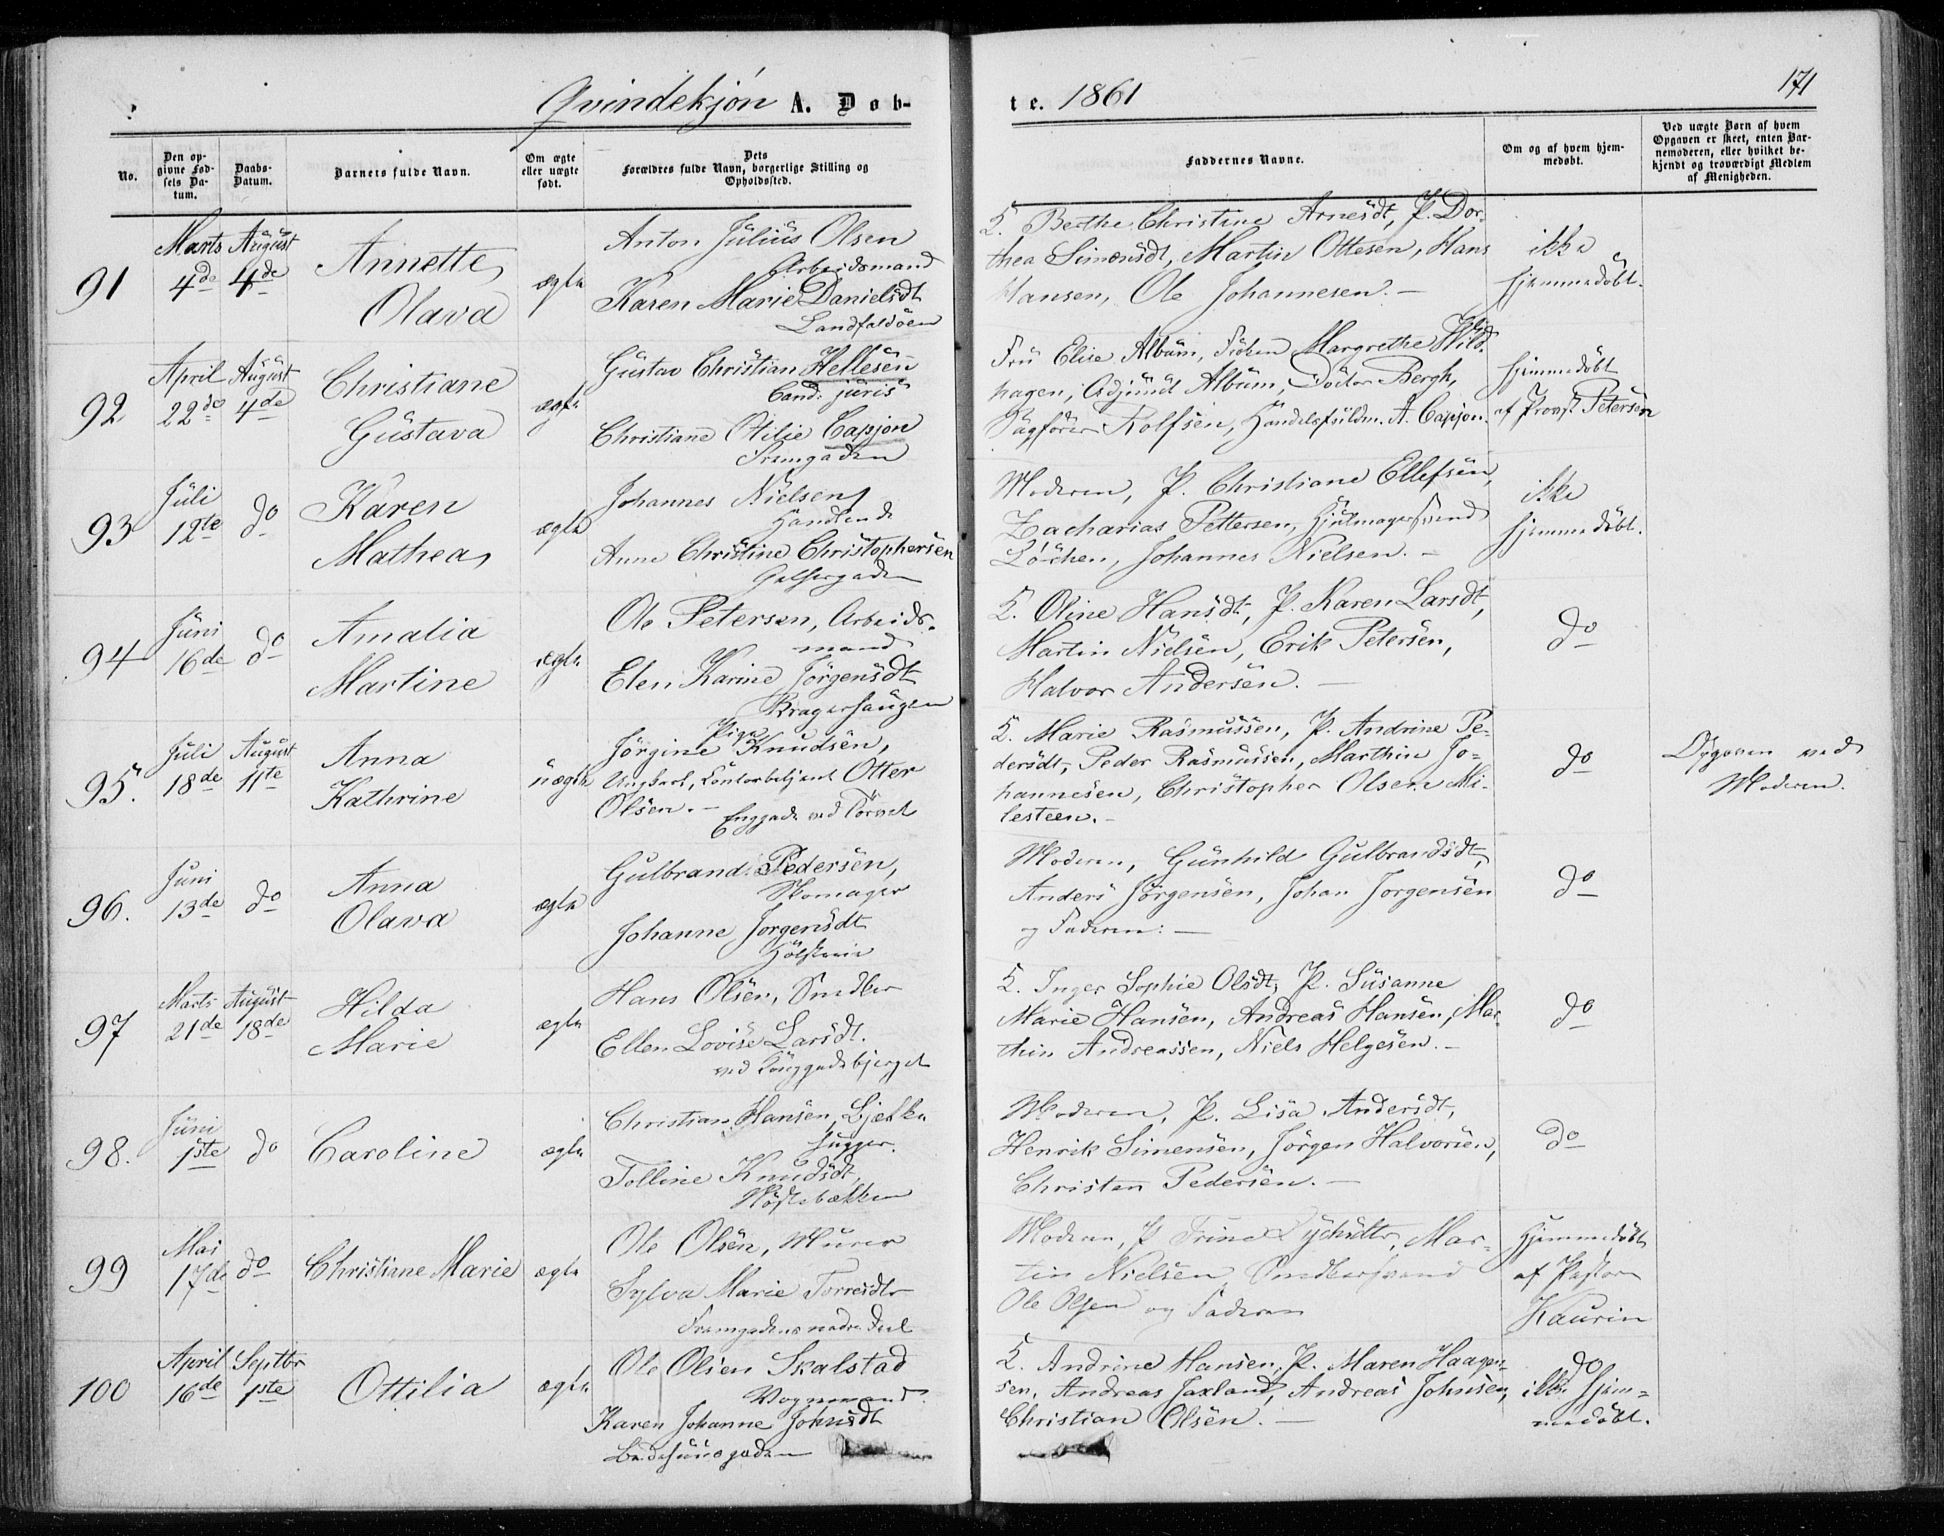 Qvindekjøn A. Døb-
te. 1861
171
No.
Den op-
givne Fød-
sels Da-
tum.
Daabs-
Datum.
Barnets fulde Navn.
Om ægte
eller uægte
født.
Dets
Forældres fulde Navn, borgerlige Stilling og
Opholdssted.
Faddernes Navne.
Om og af hvem hjem-
medøbt.
Ved uægte Børn af hvem
Opgaven er skeet, enten Bar-
nemoderen, eller hvilket be-
kjendt og troværdigt Medlem
af Menigheden.
91
Marts
4de
August
4de
Annette
Olava
ægte
Anton Julius Olsen
Arbeidsmand
Karen Marie Danielsdt
Landfaldøen
K. Berthe Christine Arnesdt, P. Dor-
thea Simensdt, Martin Ottesen, Hans
Hansen, Ole Johannesen. –
ikke
hjemmedøbt.
92
April
22de
August
4de
Christiane
Gustava
ægte
Gustav Christian Hellesen
Cand. juris
Christiane Otilie Capjon
Strømgaden
Fru Elise Album, Frøken Margrethe Wild-
hagen, Adjunct Album, Doctor Bergh,
Sagfører Rolfsen, Handelsfuldm. A. Capjon.
hjemmedøbt
af Provst Petersen
93
Juli
12te
do
Karen
Mathea
ægte
Johannes Nielsen
Handlende
Anne Christine Christophersen
Moderen, P. Christiane Ellefsen,
Zacharias Pettersen, Hjulmagersvend
Løchen, Johannes Nielsen. –
ikke
hjemmedøbt.
94
Juni
16de
do
Amalia
Martine
ægte
Ole Petersen, Arbeids-
mand
Elen Karine Jörgensdt
Bragerhaugen
K. Oline Hansdt, P. Karen Larsdt,
Martin Nielsen, Erik Petersen,
Halvor Andersen. –
do
95.
Juli
18de
August
11te
Anna
Kathrine
uægte
Pige
Jörgine Knudsen,
Ungkarl, Contorbetjent Otter
Olsen. –
Enggade ved Torvet
K. Marie Rasmussen, P. Andrine Pe-
dersdt, Peder Rasmussen, Marthin Jo-
hannesen, Christopher Olsen Mi-
lesteen. –
do
Opgaven ved
Moderen.
96.
Juni
13de
do
Anna
Olava
ægte
Gulbrand Pedersen,
Skomager
Johanne Jorgensdt
Moderen, Gunhild Gulbrandsdt,
Anders Jörgensen, Johan Jorgensen
og Faderen. –
do
97
Marts
21de
August
18de
Hilda
Marie
ægte
Hans Olsen, Snedker
Ellen Lovise Larsdt.
K. Inger Sophie Olsdt, P. Susanne
Marie Hansen, Andreas Hansen, Mar-
thin Andreassen, Niels Helgesen. –
do
98.
Juni
1ste
do
Caroline
ægte
Christian Hansen, Bjelke
hugger.
Tolline Knudsdt,
Moderen, P. Lisa Andersdt,
Henrik Simensen, Jörgen Halvorsen,
Christen Pedersen. –
do
99
Mai
17de
do
Christiane Marie
ægte
Ole Olsen, Murer
Sylva Marie Torresdtr
Strømgadens nedre Deel
Moderen, P. Trine
Mar-
tin Nielsen Snedkersvend
Ole Olsen og Faderen
Hjemmedøbt
af Pastor
Kaurin
100
April
16de
Septbr
1ste
Ottilia
ægte
Ole Olsen Skalstad
Vognmand.
Karen Johanne Johnsdt
K. Andrine Hansen, P. Maren Haagen-
sen, Andreas Jaxland, Andreas Johnsen,
Christian Olsen. –
do
ikke hjem-
medøbt.